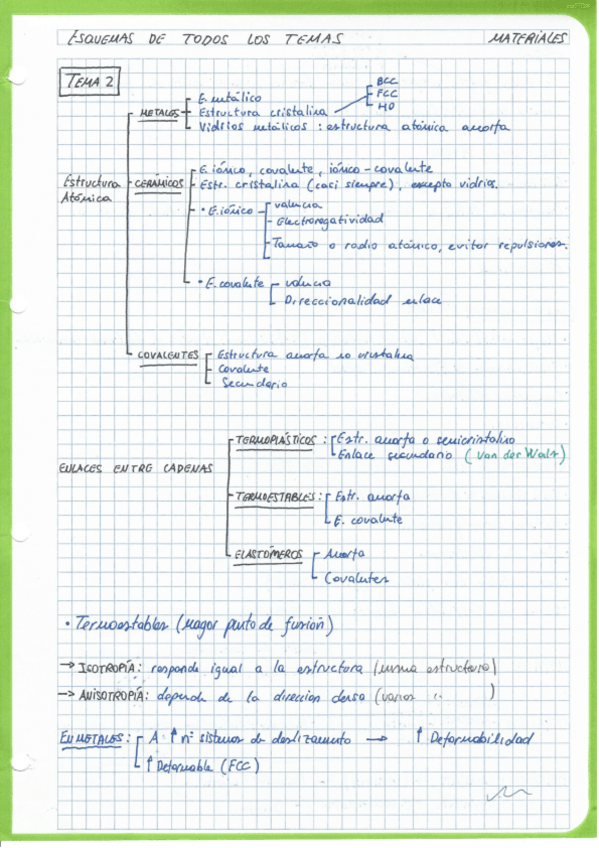 ESQUEMAS DE TODOS LOS TEMAS MATERIALES
TEMA 2
Estructura Atómica
METALES
E. metálico
Estructura cristalina
BCC
FCC
HC
Vidrios metálicos : estructura atómica amorfa
CERÁMICOS
E. iónico, covalente, iónico-covalente
Estr. cristalina (casi siempre), excepto vidrios.
• E. iónico
valencia
Electronegatividad
Tamaño o radio atómico, evitar repulsiones.
• E. covalente
valencia
Direccionalidad enlace
COVALENTES
Estructura amorfa no cristalina
Covalente
Secundario
ENLACES ENTRE CADENAS
TERMOPLÁSTICOS :
Estr. amorfa o semicristalino
Enlace secundario (Van der Wals)
TERMOESTABLES :
Estr. amorfa
E. covalente
ELASTÓMEROS
Amorfa
Covalentes
• Termoestables (Mayor punto de fusión)
→ ISOTROPÍA: responde igual a la estructura (misma estructura)
→ ANISOTROPÍA: depende de la direccion densa (varias " )
EN METALES :
A ↑ nº sistemas de deslizamento → ↑ Deformabilidad
↑ Deformable (FCC)